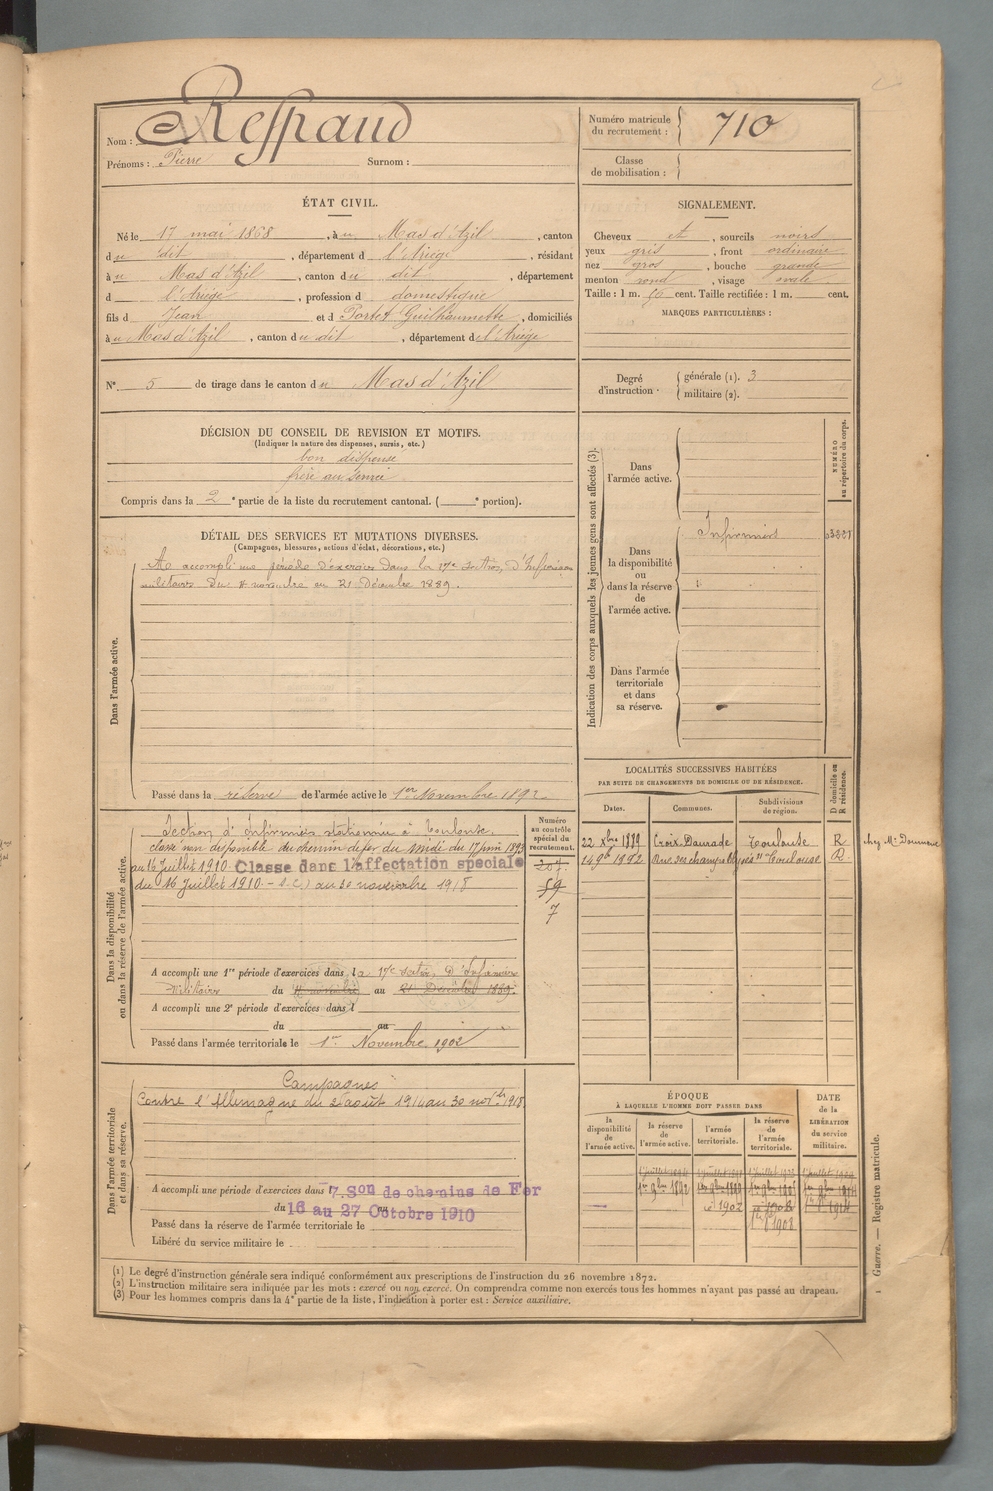 Nom : Respaud
Prénoms : Pierre Surnom :
Numéro matricule du recrutement : 710
Classe de mobilisation :
ÉTAT CIVIL.
Né le 17 mai 1868, à u Mas d'Azil, canton
du dit, département d l'Ariège, résidant
à u Mas d'Azil, canton du dit, département
d l'Ariège, profession d domestique
fils d Jean et d Portet Guilhaumette, domiciliés
à u Mas d'Azil, canton du dit, département de l'Ariège
N° 5 de tirage dans le canton du Mas d'Azil
SIGNALEMENT.
Cheveux et, sourcils noirs
yeux gris, front ordinaire
nez gros, bouche grande
menton rond, visage ovale
Taille : 1 m. cent. Taille rectifiée : 1 m. cent.
MARQUES PARTICULIÈRES :
Degré d'instruction : générale (1). 3
militaire (2).
DÉCISION DU CONSEIL DE REVISION ET MOTIFS.
(Indiquer la nature des dispenses, sursis, etc.)
bon dispense
frère au service
Compris dans la 2e partie de la liste du recrutement cantonal. ( e portion).
DÉTAIL DES SERVICES ET MUTATIONS DIVERSES.
(Campagnes, blessures, actions d'éclat, décorations, etc.)
Dans l'armée active.
A accompli une période d'exercices dans la 17e section d'Infirmiers
militaires du novembre au 21 Décembre 1889.
Passé dans la réserve de l'armée active le 1er Novembre 1892
Indication des corps auxquels les jeunes gens sont affectés (3).
NUMÉRO au répertoire du corps.
Dans l'armée active.
Dans la disponibilité ou dans la réserve de l'armée active.
Infirmiers
Dans l'armée territoriale et dans sa réserve.
Dans la disponibilité ou dans la réserve de l'armée active.
Numéro au contrôle spécial du recrutement.
Section d'Infirmiers stationnée à Toulouse.
classé non disponible du chemin de fer du midi du 17 juin 1893
au 16 Juillet 1910 Classé dans l'affectation spéciale
du 16 Juillet 1910 - au 30 novembre 1918
207
59
7
A accompli une 1re période d'exercices dans la 17e section d'Infirmiers
Militaires du novembre au 21 Décembre 1889.
A accompli une 2e période d'exercices dans l
du au
Passé dans l'armée territoriale le 1er Novembre 1902
LOCALITÉS SUCCESSIVES HABITÉES
PAR SUITE DE CHANGEMENTS DE DOMICILE OU DE RÉSIDENCE.
D domicile ou R résidence.
Dates. Communes. Subdivisions de région.
22 xbre 1889 Croix-Daurade Toulouse R chez Mr
14 9bre 1892 Rue des champs Toulouse R
Dans l'armée territoriale et dans sa réserve.
Campagnes
Contre l'Allemagne du 2 août 1914 au 30 novbre 1918
A accompli une période d'exercices dans 7. Son de chemins de Fer
du 16 au 27 Octobre 1910
Passé dans la réserve de l'armée territoriale le
Libéré du service militaire le
ÉPOQUE
À LAQUELLE L'HOMME DOIT PASSER DANS
DATE de la LIBÉRATION du service militaire.
la disponibilité de l'armée active.
la réserve de l'armée active.
l'armée territoriale.
la réserve de l'armée territoriale.
1er 9bre 1892
1902
1908
(1) Le degré d'instruction générale sera indiqué conformément aux prescriptions de l'instruction du 26 novembre 1872.
(2) L'instruction militaire sera indiquée par les mots : exercé ou non exercé. On comprendra comme non exercés tous les hommes n'ayant pas passé au drapeau.
(3) Pour les hommes compris dans la 4e partie de la liste, l'indication à porter est : Service auxiliaire.
Guerre. — Registre matricule.